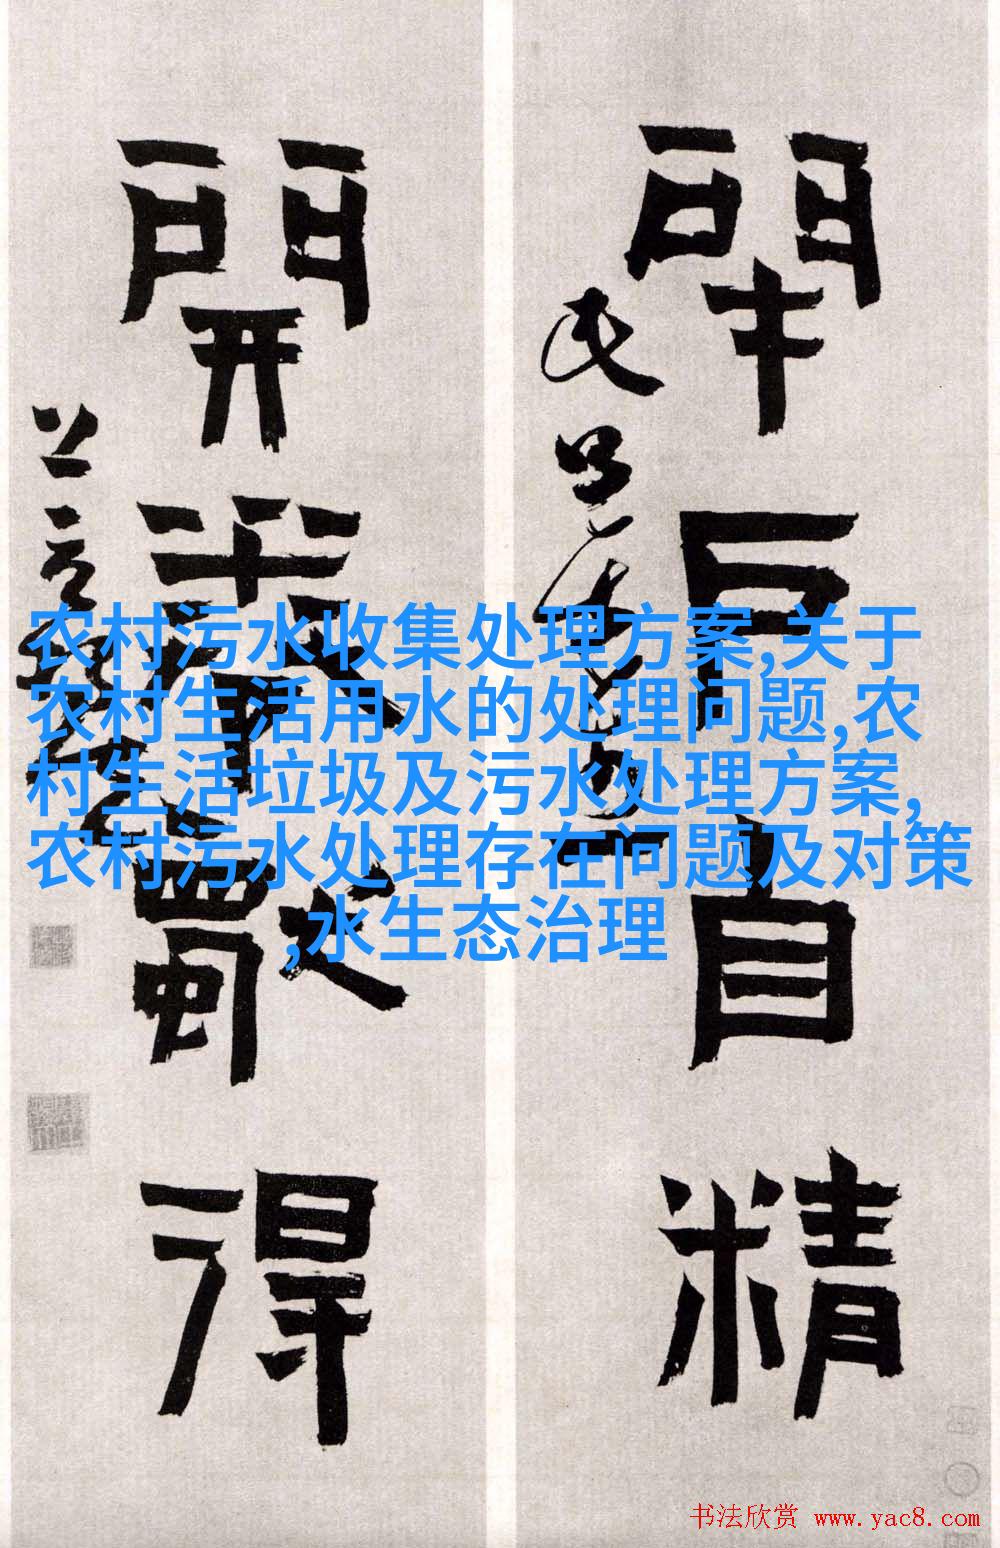 閉戶自精
開卷獨得
农村污水收集处理方案,关于
农村生活用水的处理问题,农
村生活垃圾及污水处理方案,
农村污水处理存在问题及对策
,水生态治理
书法欣赏 www.yac8.com